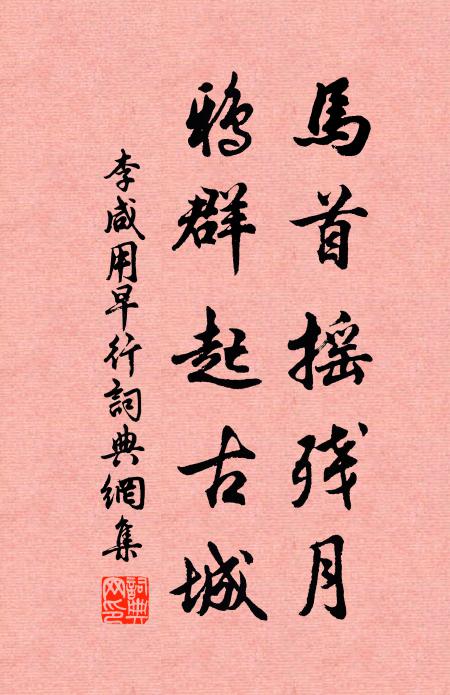 馬首摇残月
鴉群起古城
李咸用早行詞典網集
詞典
网印